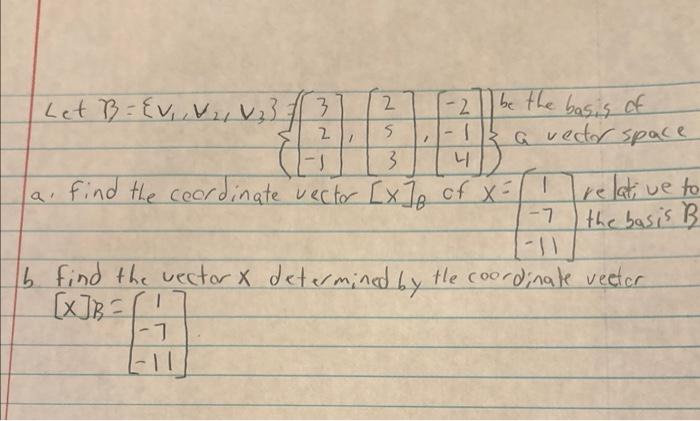 Let B = {V₁, V₂, V₃} = { [3 2 -1], [2 5 3], [-2 -1 4] } be the basis of
a vector space
a. find the coordinate vector [X]_B of X = [1 -7 -11] relative to
the basis B
b find the vector X determined by the coordinate vector
[X]B = [1 -7 -11]